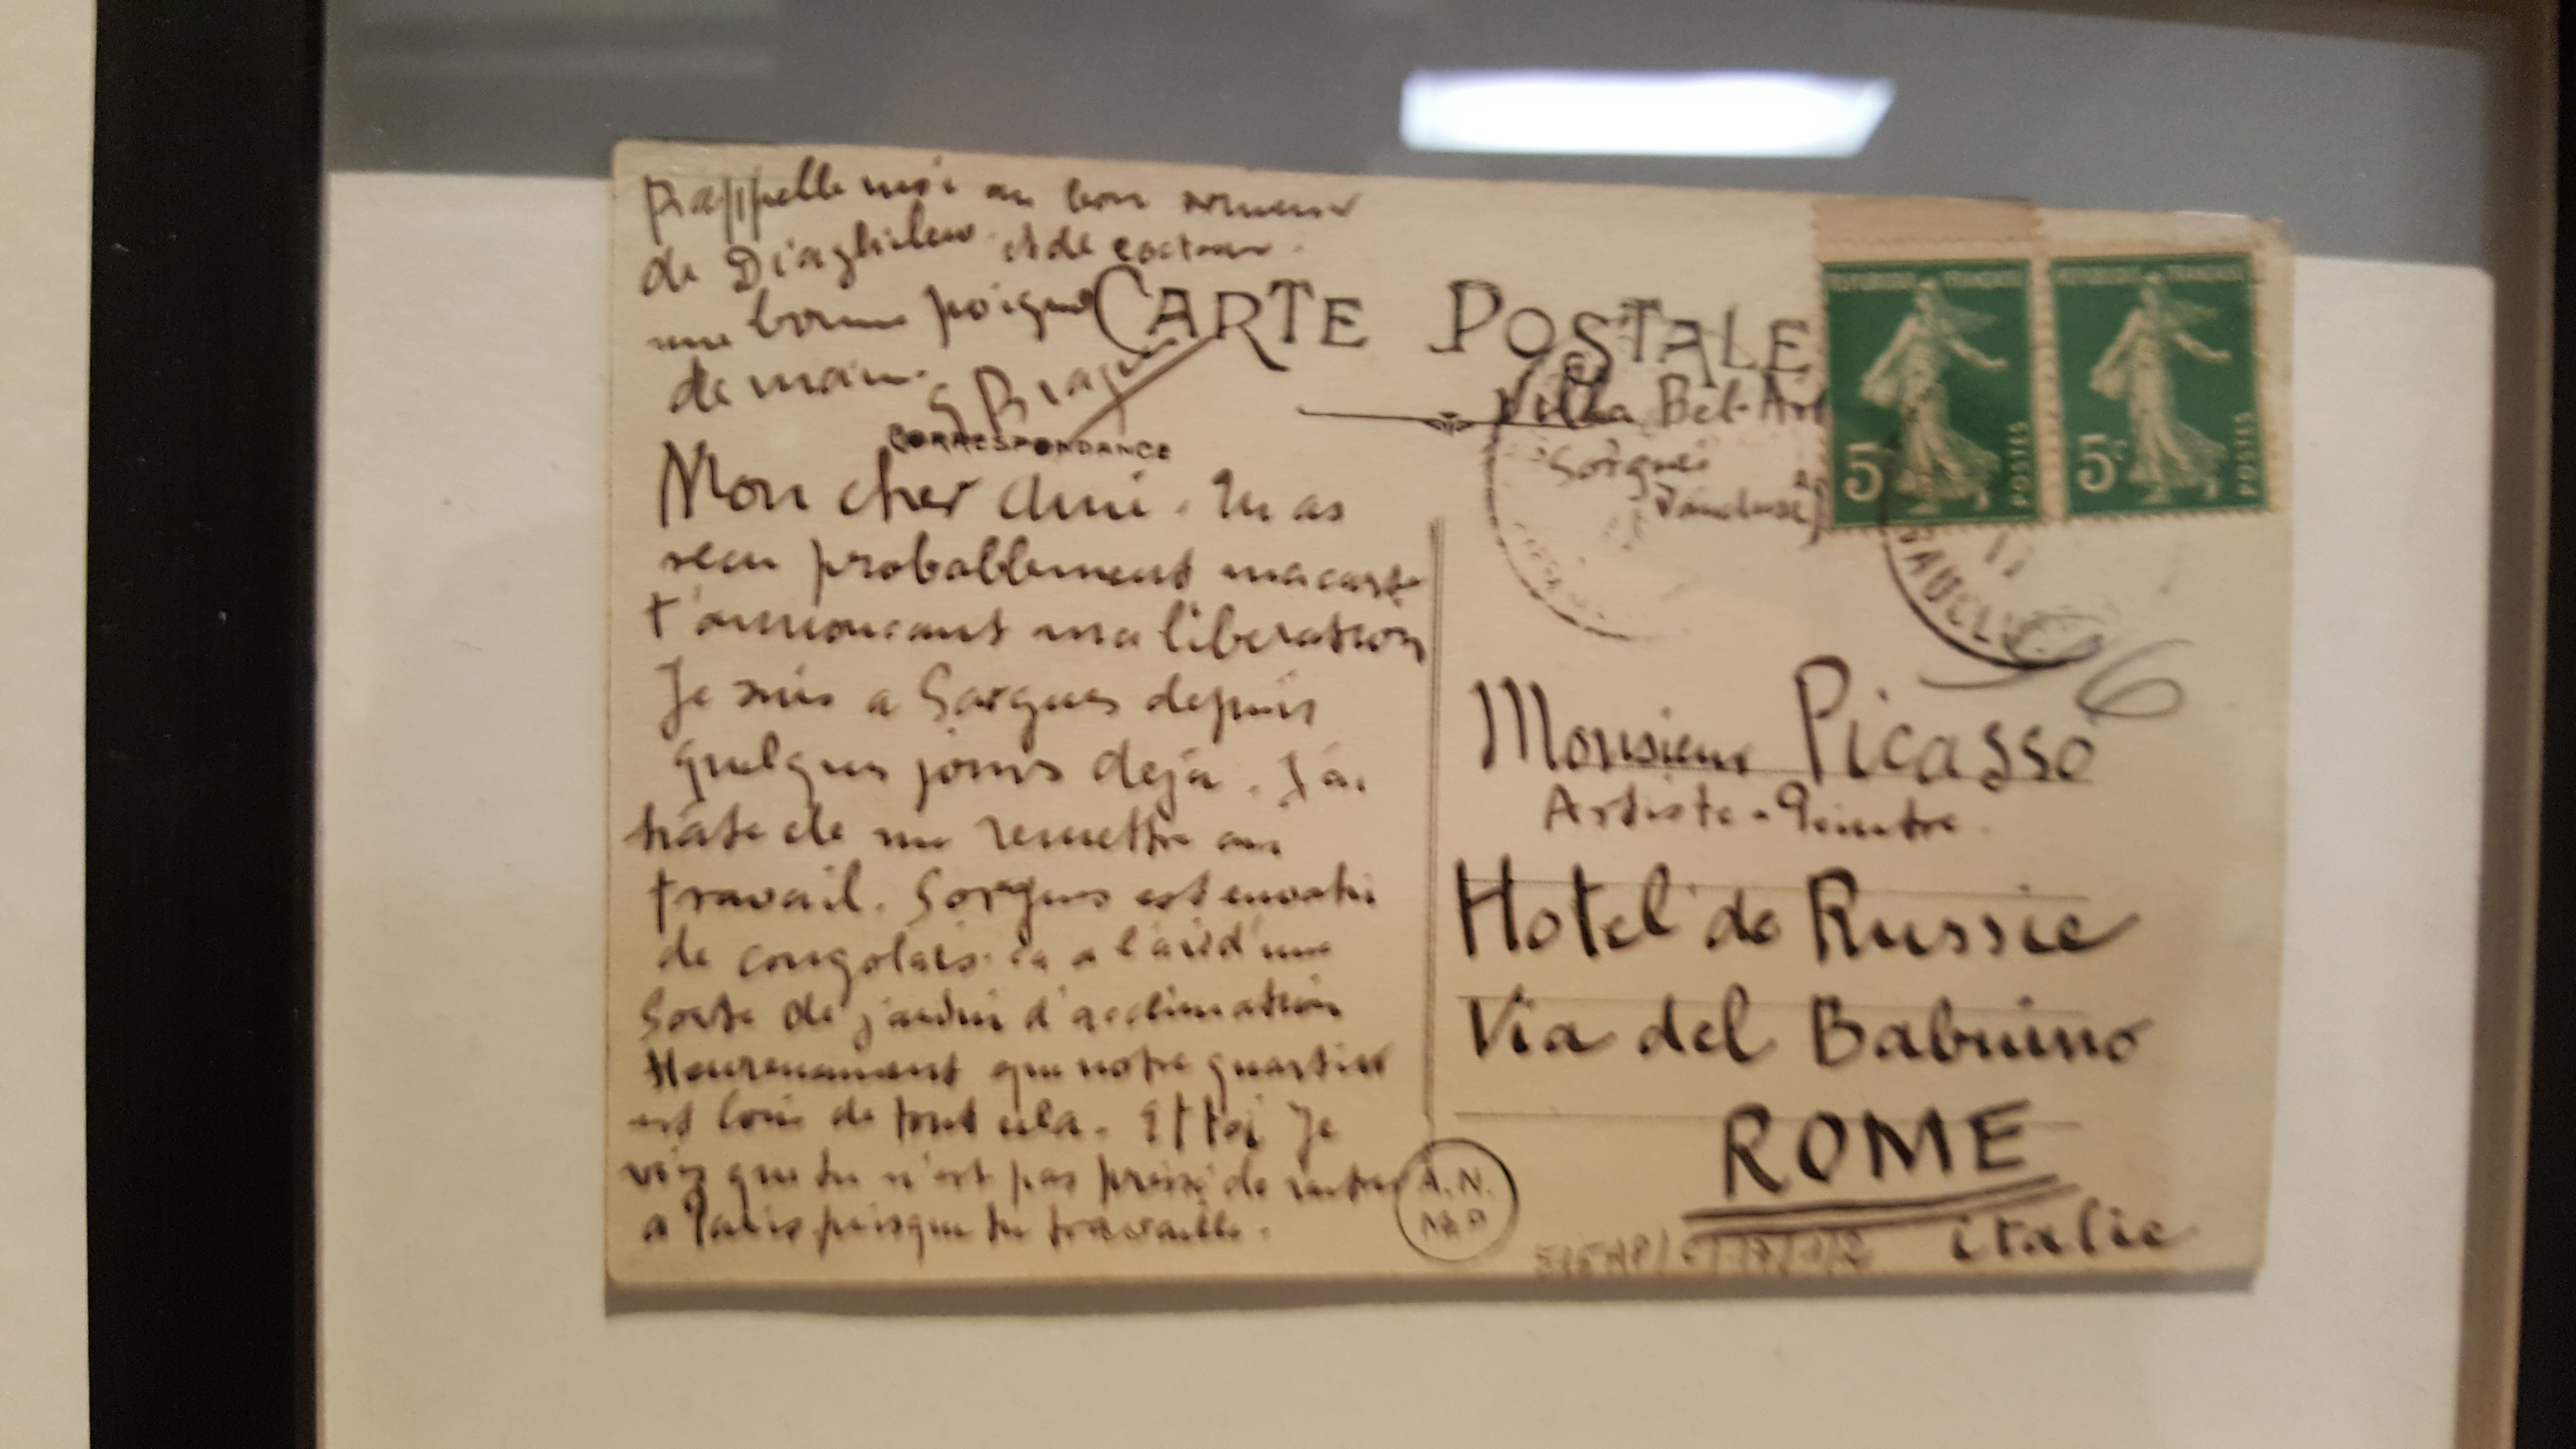 Rappelle moi au bon souvenir
de Diaghilew et de Cocteau.
une bonne poignée
de main.
G Braque
CARTE POSTALE
CORRESPONDANCE
Mon cher Ami. Tu as
recu probablement ma carte
t'annoncant ma liberation
Je suis a Sorgues depuis
quelques jours deja. J'ai
hâte de me remettre au
travail. Sorgues est envahi
de congolais. ca a l'air d'une
sorte de jardin d'acclimation
Heureusement que notre quartier
est loin de tout cela. Et toi Je
vois que tu n'est pas pressé de rentrer
a Paris puisque tu travaille.
Villa Bel-Air
Sorgues
Vaucluse
REPUBLIQUE FRANCAISE
5c
POSTES
REPUBLIQUE FRANCAISE
5c
POSTES
VAUCLUSE
6
Monsieur Picasso
Artiste-Peintre
Hotel de Russie
Via del Babuino
ROME
italie
A.N.